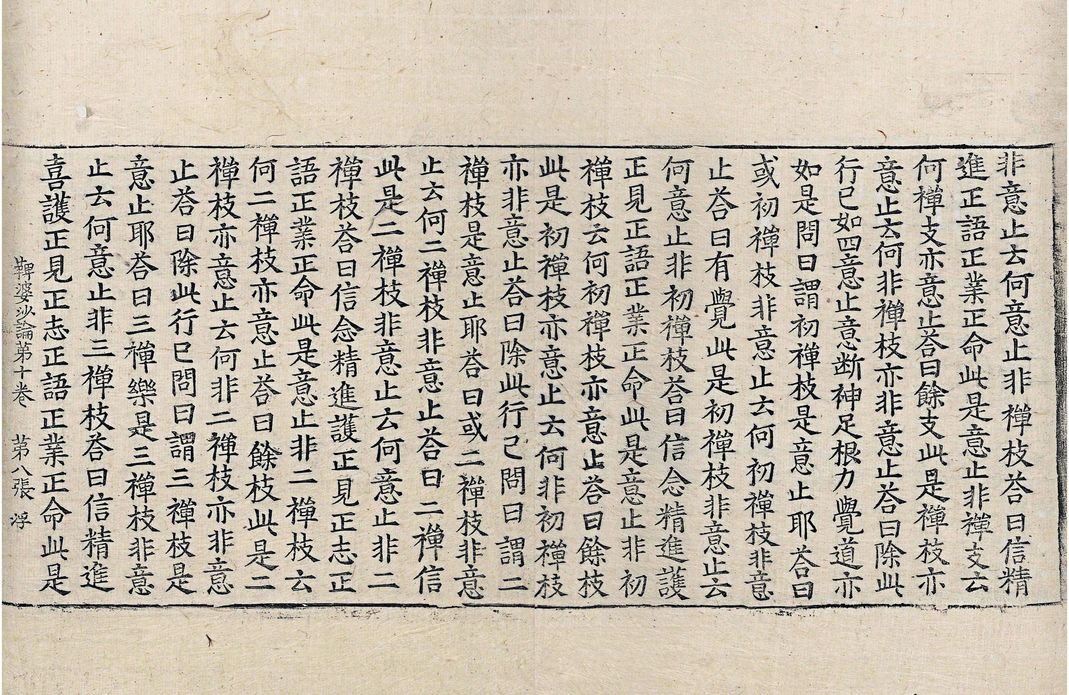 非意止云何意止非禪枝荅曰信精
進正語正業正命此是意止非禪支云
何禪支亦意止荅曰餘支此是禪枝亦
意止云何非禪枝亦非意止荅曰除此
行已如四意止意断神足根力覺道亦
如是問曰謂初禪枝是意止耶荅曰
或初禪枝非意止云何初禪枝非意
止荅曰有覺此是初禪枝非意止云
何意止非初禪枝荅曰信念精進護
正見正語正業正命此是意止非初
禪枝云何初禪枝亦意止荅曰餘枝
此是初禪枝亦意止云何非初禪枝
亦非意止荅曰除此行已問曰謂二
禪枝是意止耶荅曰或二禪枝非意
止云何二禪枝非意止荅曰二禪信
此是二禪枝非意止云何意止非二
禪枝荅曰信念精進護正見正志正
語正業正命此是意止非二禪枝云
何二禪枝亦意止荅曰餘枝此是二
禪枝亦意止云何非二禪枝亦非意
止荅曰除此行已問曰謂三禪枝是
意止耶荅曰三禪樂是三禪枝非意
止云何意止非三禪枝荅曰信精進
喜護正見正志正語正業正命此是
鞞婆沙論第十卷 第八張 浮